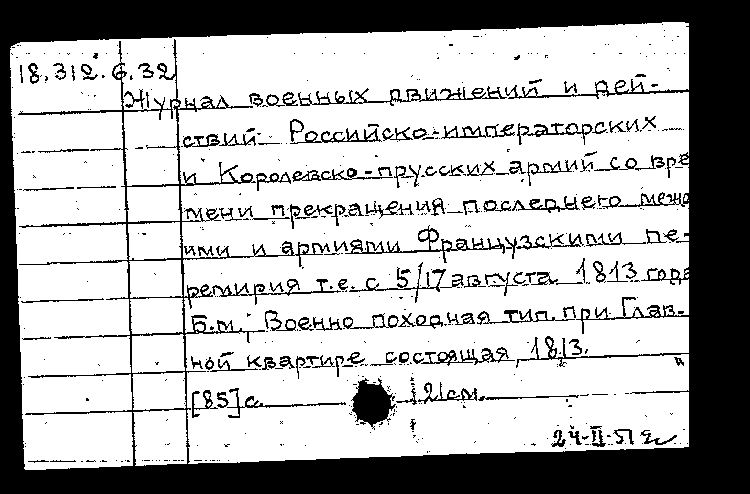 18.312.6.32
Журнал военных движений и дей-
ствий Российско-императорских
и Королевско-прусских армий со вре
мени прекращения последнего межд
ими и армиями Французскими пе-
ремирия т.е. с 5/17 августа 1813 года
Б.м., Военно походная тип. при Глав-
ной квартире состоящая, 1813.
[85] с. 21 см.
24-II-51 г.